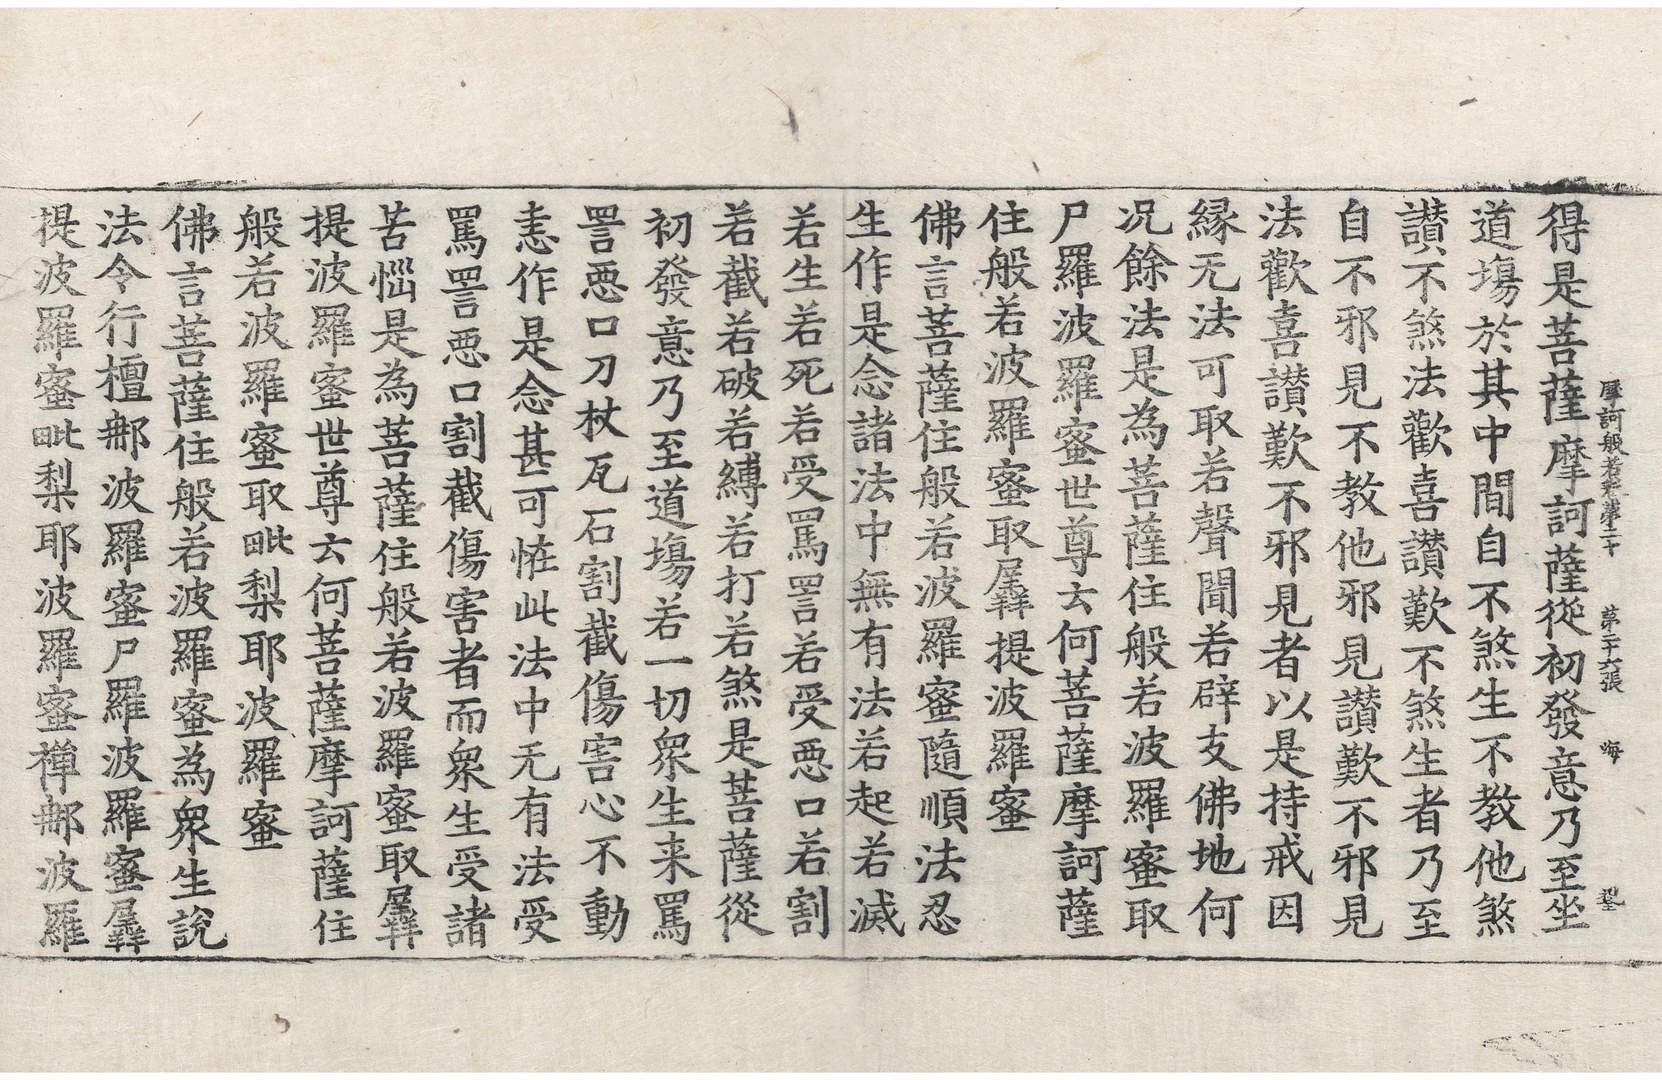 摩訶般若經第二十 第二十六張 海
得是菩薩摩訶薩從初發意乃至坐
道場於其中間自不煞生不教他煞
讃不煞法歡喜讃歎不煞生者乃至
自不邪見不教他邪見讃歎不邪見
法歡喜讃歎不邪見者以是持戒因
縁无法可取若聲聞若辟支佛地何
况餘法是為菩薩住般若波羅蜜取
尸羅波羅蜜世尊云何菩薩摩訶薩
住般若波羅蜜取羼提波羅蜜
佛言菩薩住般若波羅蜜隨順法忍
生作是念諸法中無有法若起若滅
若生若死若受罵詈若受惡口若割
若截若破若縛若打若煞是菩薩從
初發意乃至道場若一切衆生来罵
詈惡口刀杖瓦石割截傷害心不動
恚作是念甚可恠此法中无有法受
罵詈惡口割截傷害者而衆生受諸
苦惱是為菩薩住般若波羅蜜取羼
提波羅蜜世尊云何菩薩摩訶薩住
般若波羅蜜取毗梨耶波羅蜜
佛言菩薩住般若波羅蜜為衆生說
法令行檀那波羅蜜尸羅波羅蜜羼
提波羅蜜毗梨耶波羅蜜禪那波羅